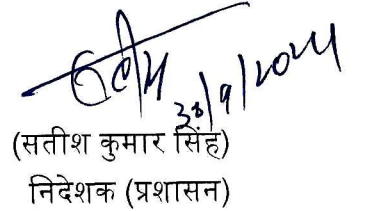 30/9/2024
(सतीश कुमार सिंह)
निदेशक (प्रशासन)